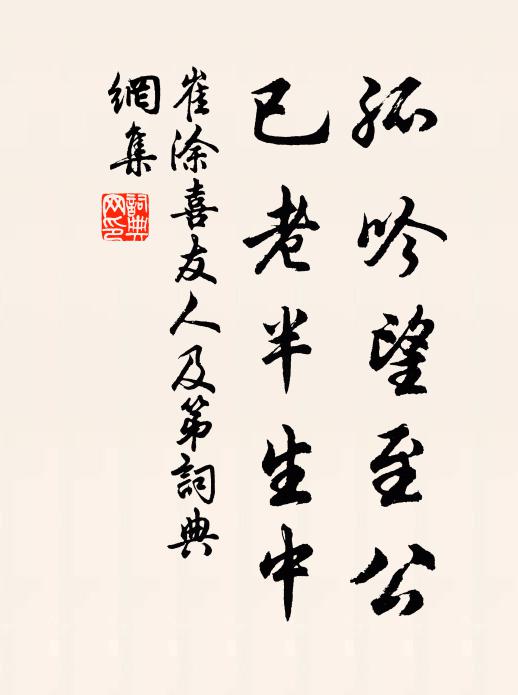 孤吟望至公
已老半生中
崔涂喜友人及第詞典
網集
詞典
网印